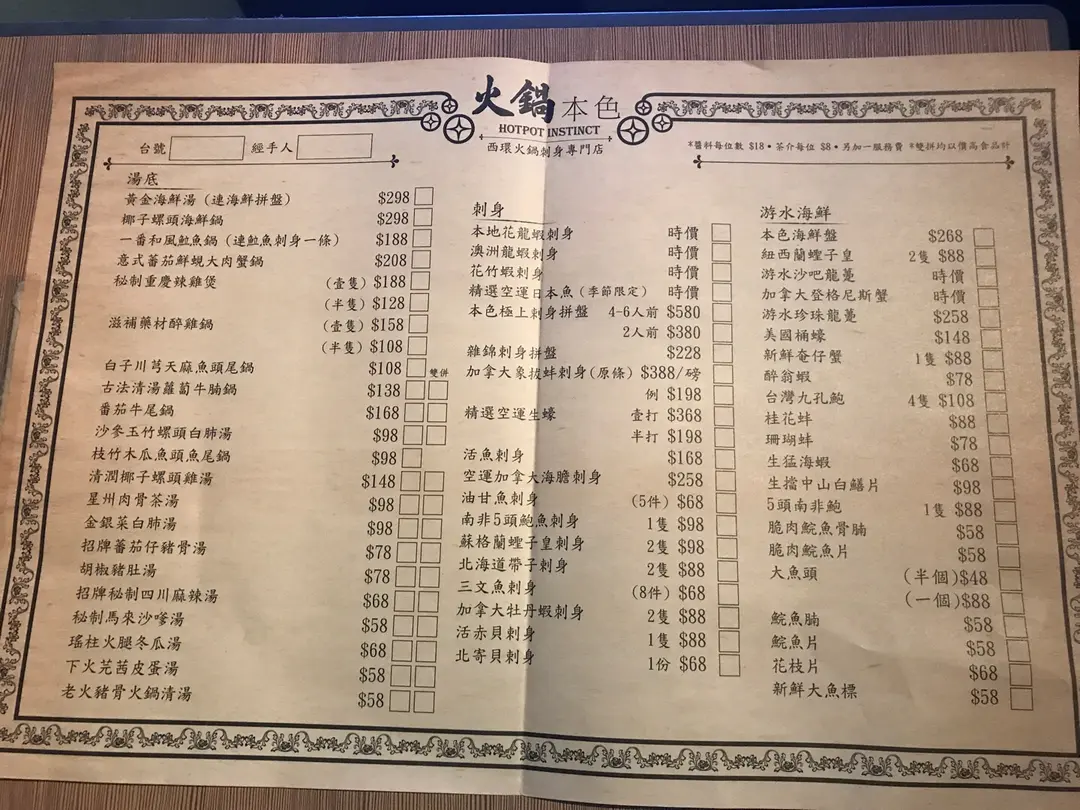 火鍋本色
HOTPOT INSTINCT
西環火鍋刺身專門店
台號
經手人
*醬料每位數 $18 • 茶介每位 $8 • 另加一服務費 *雙拼均以價高食品計
湯底
黃金海鮮湯 (連海鮮拼盤) $298
椰子螺頭海鮮鍋 $298
一番和風魚鍋 (連魚刺身一條) $188
意式蕃茄鮮蜆大肉蟹鍋 $208
秘制重慶辣雞煲 (壹隻) $188
(半隻) $128
滋補藥材醉雞鍋 (壹隻) $158
(半隻) $108
白子川芎天麻魚頭尾鍋 $108
雙併
古法清湯蘿蔔牛腩鍋 $138
番茄牛尾鍋 $168
沙參玉竹螺頭白肺湯 $98
枝竹木瓜魚頭魚尾鍋 $98
清潤椰子螺頭雞湯 $148
星州肉骨茶湯 $98
金銀菜白肺湯 $98
招牌蕃茄仔豬骨湯 $78
胡椒豬肚湯 $78
招牌秘制四川麻辣湯 $68
秘制馬來沙嗲湯 $58
瑤柱火腿冬瓜湯 $68
下火芫茜皮蛋湯 $58
老火豬骨火鍋清湯 $58
刺身
本地花龍蝦刺身 時價
澳洲龍蝦刺身 時價
花竹蝦刺身 時價
精選空運日本魚 (季節限定) 時價
本色極上刺身拼盤 4-6人前 $580
2人前 $380
雜錦刺身拼盤 $228
加拿大象拔蚌刺身(原條) $388/磅
例 $198
精選空運生蠔 壹打 $368
半打 $198
活魚刺身 $168
空運加拿大海膽刺身 $258
油甘魚刺身 (5件) $68
南非5頭鮑魚刺身 1隻 $98
蘇格蘭蟶子皇刺身 2隻 $98
北海道帶子刺身 2隻 $88
三文魚刺身 (8件) $68
加拿大牡丹蝦刺身 2隻 $88
活赤貝刺身 1隻 $88
北寄貝刺身 1份 $68
游水海鮮
本色海鮮盤 $268
紐西蘭蟶子皇 2隻 $88
游水沙吧龍躉 時價
加拿大登格尼斯蟹 時價
游水珍珠龍躉 $258
美國桶蠔 $148
新鮮奄仔蟹 1隻 $88
醉翁蝦 $78
台灣九孔鮑 4隻 $108
桂花蚌 $88
珊瑚蚌 $78
生猛海蝦 $68
生擋中山白鱔片 $98
5頭南非鮑 1隻 $88
脆肉鯇魚骨腩 $58
脆肉鯇魚片 $58
大魚頭 (半個)$48
(一個)$88
鯇魚腩 $58
鯇魚片 $58
花枝片 $68
新鮮大魚標 $58